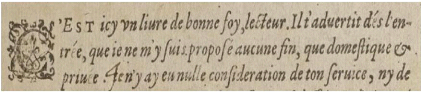 C'EST icy vn liure de bonne foy, lecteur. Il t'aduertit dés l'en-
trée, que ie ne m'y suis proposé aucune fin, que domestique &
priuee. Ie n'y ay eu nulle consideration de ton seruice, ny de